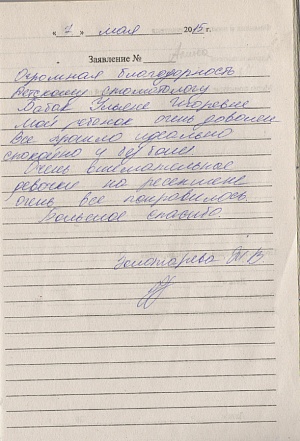 « 7 » мая 2015 г.
Заявление №
Огромная благодарность
детскому стоматологу
Бабак Ульяне Игоревне
Мой ребенок очень доволен
Все прошло идеально
спокойно и без боли
Очень внимательные
девочки на ресепшене
очень все понравилось.
Большое спасибо
Золотарева